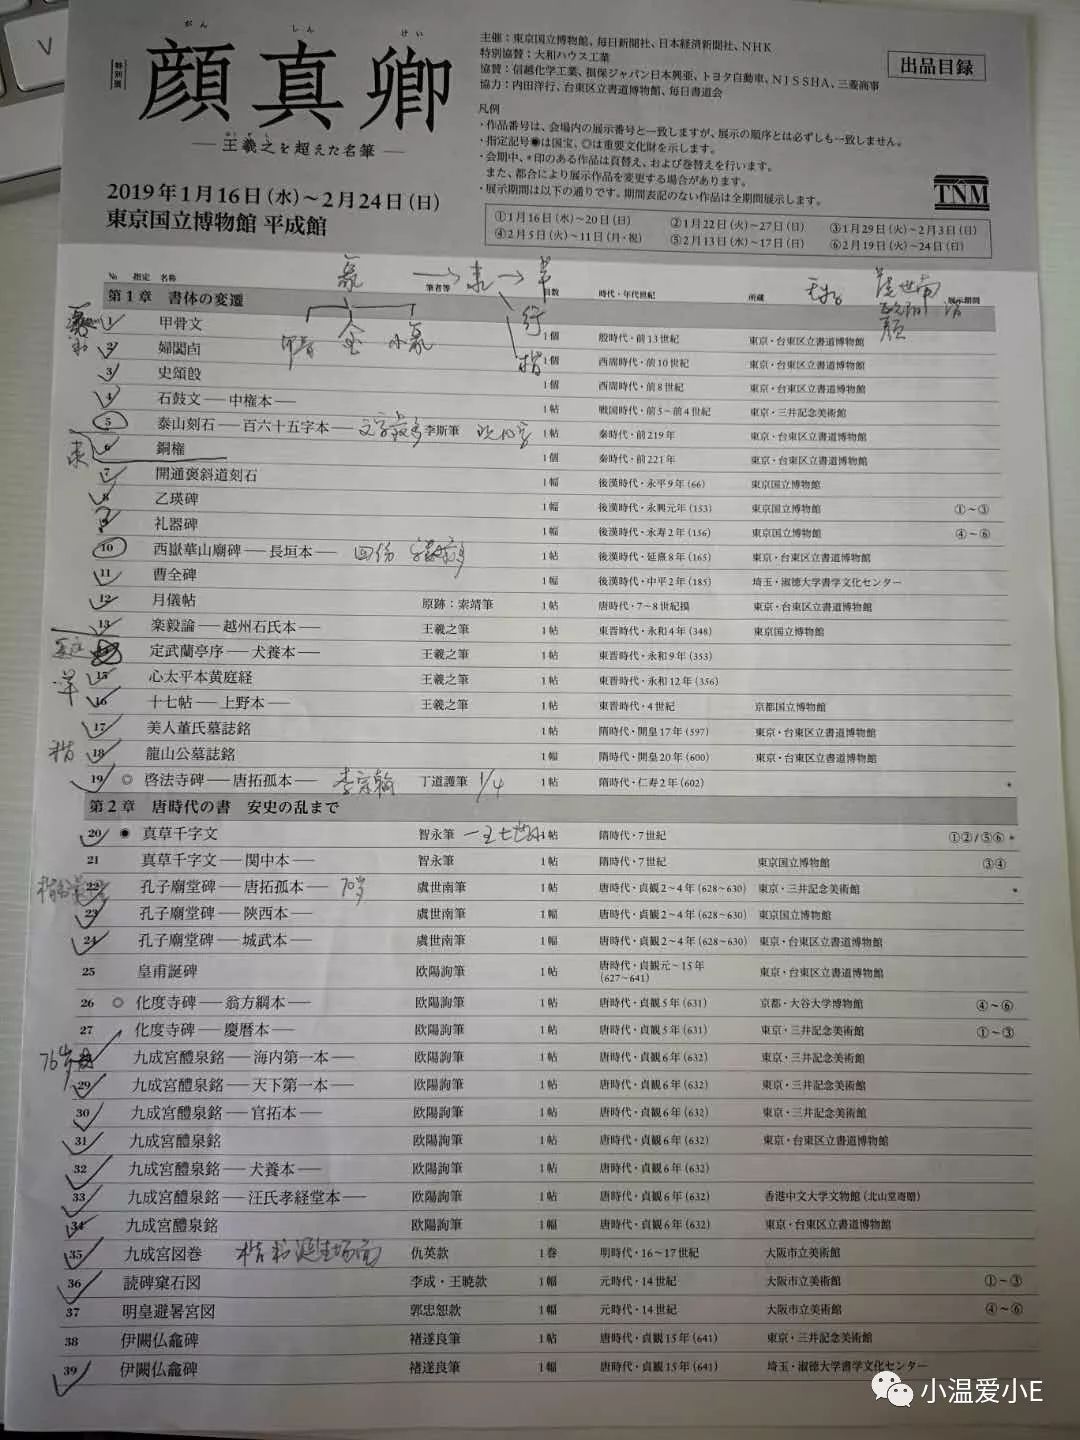 特別展
がん しん けい
顔真卿
王羲之を超えた名筆
2019年1月16日(水)～2月24日(日)
東京国立博物館 平成館
主催：東京国立博物館、毎日新聞社、日本経済新聞社、NHK
特別協賛：大和ハウス工業
協賛：信越化学工業、損保ジャパン日本興亜、トヨタ自動車、NISSHA、三菱商事
協力：内田洋行、台東区立書道博物館、毎日書道会
出品目録
凡例
・作品番号は、会場内の展示番号と一致しますが、展示の順序とは必ずしも一致しません。
・指定記号◉は国宝、◎は重要文化財を示します。
・会期中、*印のある作品は頁替え、および巻替えを行います。
また、都合により展示作品を変更する場合があります。
・展示期間は以下の通りです。期間表記のない作品は全期間展示します。
TNM
①1月16日(水)～20日(日) ②1月22日(火)～27日(日) ③1月29日(火)～2月3日(日)
④2月5日(火)～11日(月・祝) ⑤2月13日(水)～17日(日) ⑥2月19日(火)～24日(日)
№ 指定 名称 筆者等 員数 時代・年代世紀 所蔵 展示期間
第1章 書体の変遷
1 甲骨文 1個 殷時代・前13世紀 東京・台東区立書道博物館
2 婦𨷼卣 1個 西周時代・前10世紀 東京・台東区立書道博物館
3 史頌𣪘 1個 西周時代・前8世紀 東京・台東区立書道博物館
4 石鼓文―中権本― 1帖 戦国時代・前5～前4世紀 東京・三井記念美術館
5 泰山刻石―百六十五字本― 李斯筆 1帖 秦時代・前219年 東京・台東区立書道博物館
6 銅権 1個 秦時代・前221年 東京・台東区立書道博物館
7 開通褒斜道刻石 1幅 後漢時代・永平9年(66) 東京国立博物館
8 乙瑛碑 1幅 後漢時代・永興元年(153) 東京国立博物館 ①～③
9 礼器碑 1幅 後漢時代・永寿2年(156) 東京国立博物館 ④～⑥
10 西嶽華山廟碑―長垣本― 四份 1帖 後漢時代・延熹8年(165) 東京・台東区立書道博物館
11 曹全碑 1幅 後漢時代・中平2年(185) 埼玉・淑徳大学書学文化センター
12 月儀帖 原跡：索靖筆 1帖 唐時代・7～8世紀摸 東京・台東区立書道博物館
13 楽毅論―越州石氏本― 王羲之筆 1帖 東晋時代・永和4年(348) 東京国立博物館
定武蘭亭序―犬養本― 王羲之筆 1帖 東晋時代・永和9年(353)
15 心太平本黄庭経 王羲之筆 1帖 東晋時代・永和12年(356)
16 十七帖―上野本― 王羲之筆 1帖 東晋時代・4世紀 京都国立博物館
17 美人董氏墓誌銘 1帖 隋時代・開皇17年(597) 東京・台東区立書道博物館
楷 18 龍山公墓誌銘 1幅 隋時代・開皇20年(600) 東京・台東区立書道博物館
19 ◎ 啓法寺碑―唐拓孤本― 李宗翰 丁道護筆 1/4 1帖 隋時代・仁寿2年(602) *
第2章 唐時代の書 安史の乱まで
20 ◉ 真草千字文 智永筆 1帖 隋時代・7世紀 ①②/⑤⑥*
21 真草千字文―関中本― 智永筆 1帖 隋時代・7世紀 東京国立博物館 ③④
22 孔子廟堂碑―唐拓孤本― 70岁 虞世南筆 1帖 唐時代・貞観2～4年(628～630) 東京・三井記念美術館 *
23 孔子廟堂碑―陝西本― 虞世南筆 1幅 唐時代・貞観2～4年(628～630) 東京国立博物館
24 孔子廟堂碑―城武本― 虞世南筆 1幅 唐時代・貞観2～4年(628～630) 東京・台東区立書道博物館
25 皇甫誕碑 欧陽詢筆 1帖 唐時代・貞観元～15年(627～641) 東京・台東区立書道博物館
26 ◎ 化度寺碑―翁方綱本― 欧陽詢筆 1帖 唐時代・貞観5年(631) 京都・大谷大学博物館 ④～⑥
27 化度寺碑―慶暦本― 欧陽詢筆 1帖 唐時代・貞観5年(631) 東京・三井記念美術館 ①～③
76岁 九成宮醴泉銘―海内第一本― 欧陽詢筆 1帖 唐時代・貞観6年(632) 東京・三井記念美術館
29 九成宮醴泉銘―天下第一本― 欧陽詢筆 1帖 唐時代・貞観6年(632) 東京・三井記念美術館
30 九成宮醴泉銘―官拓本― 欧陽詢筆 1帖 唐時代・貞観6年(632) 東京・三井記念美術館
31 九成宮醴泉銘 欧陽詢筆 1帖 唐時代・貞観6年(632) 東京・台東区立書道博物館
32 九成宮醴泉銘―犬養本― 欧陽詢筆 1帖 唐時代・貞観6年(632)
33 九成宮醴泉銘―汪氏孝経堂本― 欧陽詢筆 1帖 唐時代・貞観6年(632) 香港中文大学文物館(北山堂寄贈)
34 九成宮醴泉銘 欧陽詢筆 1幅 唐時代・貞観6年(632) 東京・台東区立書道博物館
35 九成宮図巻 楷书诞生场面 仇英款 1巻 明時代・16～17世紀 大阪市立美術館
36 読碑窠石図 李成・王暁款 1幅 元時代・14世紀 大阪市立美術館 ①～③
37 明皇避暑宮図 郭忠恕款 1幅 元時代・14世紀 大阪市立美術館 ④～⑥
38 伊闕仏龕碑 褚遂良筆 1帖 唐時代・貞観15年(641) 東京・三井記念美術館
39 伊闕仏龕碑 褚遂良筆 1幅 唐時代・貞観15年(641) 埼玉・淑徳大学書学文化センター
小温爱小E